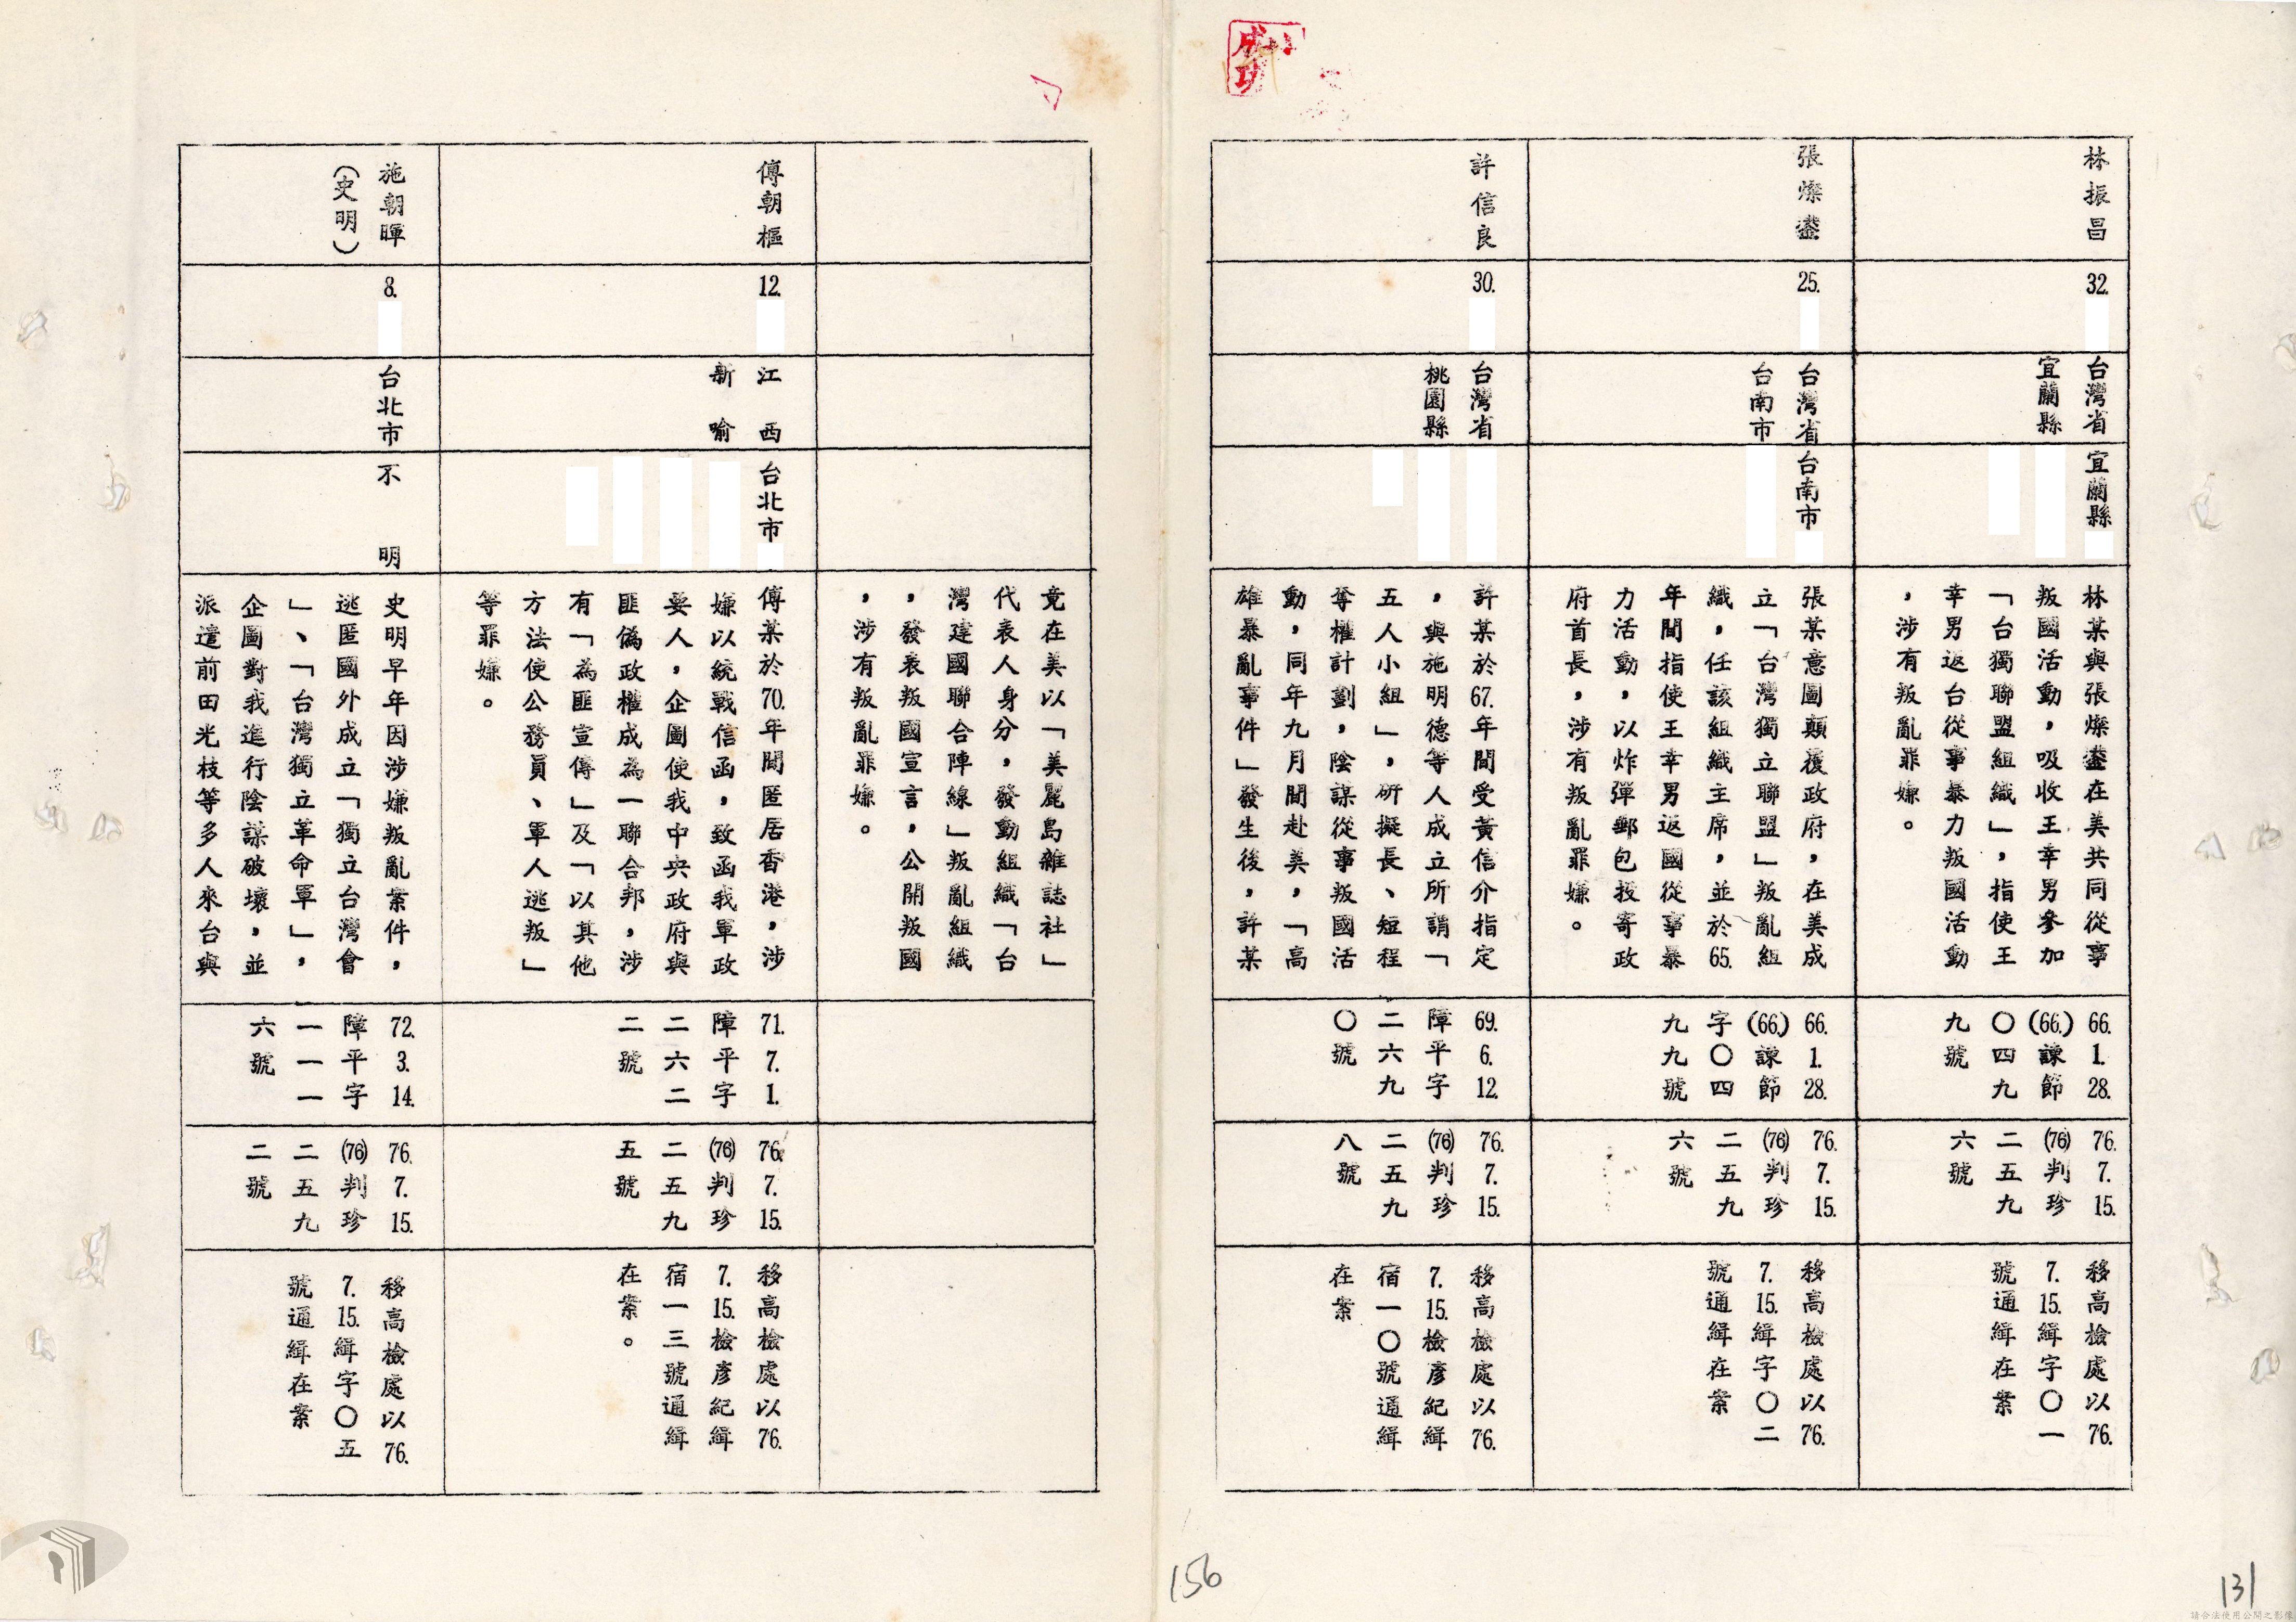 林振昌
32.
台灣省
宜蘭縣
宜蘭縣
林某與張燦鍙在美共同從事
叛國活動，吸收王幸男參加
「台獨聯盟組織」，指使王
幸男返台從事暴力叛國活動
，涉有叛亂罪嫌。
66. 1. 28.
(66.)諫節
〇四九
九號
76. 7. 15.
(76)判珍
二五九
六號
移高檢處以76.
7. 15. 緝字〇一
號通緝在案
張燦鍙
25.
台灣省
台南市
台南市
張某意圖顛覆政府，在美成
立「台灣獨立聯盟」叛亂組
織，任該組織主席，並於65.
年間指使王幸男返國從事暴
力活動，以炸彈郵包投寄政
府首長，涉有叛亂罪嫌。
66. 1. 28.
(66.)諫節
字〇四
九九號
76. 7. 15.
(76)判珍
二五九
六號
移高檢處以76.
7. 15. 緝字〇二
號通緝在案
許信良
30.
台灣省
桃園縣
許某於67.年間受黃信介指定
，與施明德等人成立所謂「
五人小組」，研擬長、短程
奪權計劃，陰謀從事叛國活
動，同年九月間赴美，「高
雄暴亂事件」發生後，許某
69. 6. 12.
障平字
二六九
〇號
76. 7. 15.
(76)判珍
二五九
八號
移高檢處以76.
7. 15. 檢彥紀緝
宿一〇號通緝
在案
竟在美以「美麗島雜誌社」
代表人身分，發動組織「台
灣建國聯合陣線」叛亂組織
，發表叛國宣言，公開叛國
，涉有叛亂罪嫌。
傅朝樞
12.
江西
新喻
台北市
傅某於70.年間匿居香港，涉
嫌以統戰信函，致函我軍政
要人，企圖使我中央政府與
匪偽政權成為一聯合邦，涉
有「為匪宣傳」及「以其他
方法使公務員、軍人逃叛」
等罪嫌。
71. 7. 1.
障平字
二六二
二號
76. 7. 15.
(76)判珍
二五九
五號
移高檢處以76.
7. 15. 檢彥紀緝
宿一三號通緝
在案。
施朝暉
（史明）
8.
台北市
不明
史明早年因涉嫌叛亂案件，
逃匿國外成立「獨立台灣會
」、「台灣獨立革命軍」，
企圖對我進行陰謀破壞，並
派遣前田光枝等多人來台與
72. 3. 14.
障平字
一一一
六號
76. 7. 15.
(76)判珍
二五九
二號
移高檢處以76.
7. 15. 緝字〇五
號通緝在案
156
131
請合法使用公開之影像